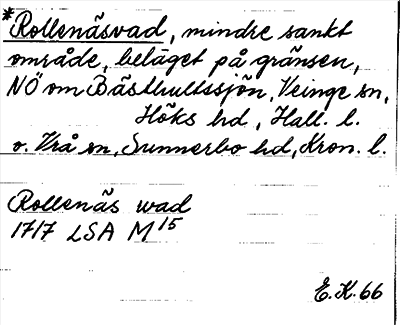 *Rollenäsvad, mindre sankt
område, beläget på gränsen,
NÖ om Bästhultssjön, Veinge sn,
Höks hd, Hall. l.
o. Vrå sn, Sunnerbo hd, Kron. l.
Rollenäs wad
1717 LSA M15
E.K. 66